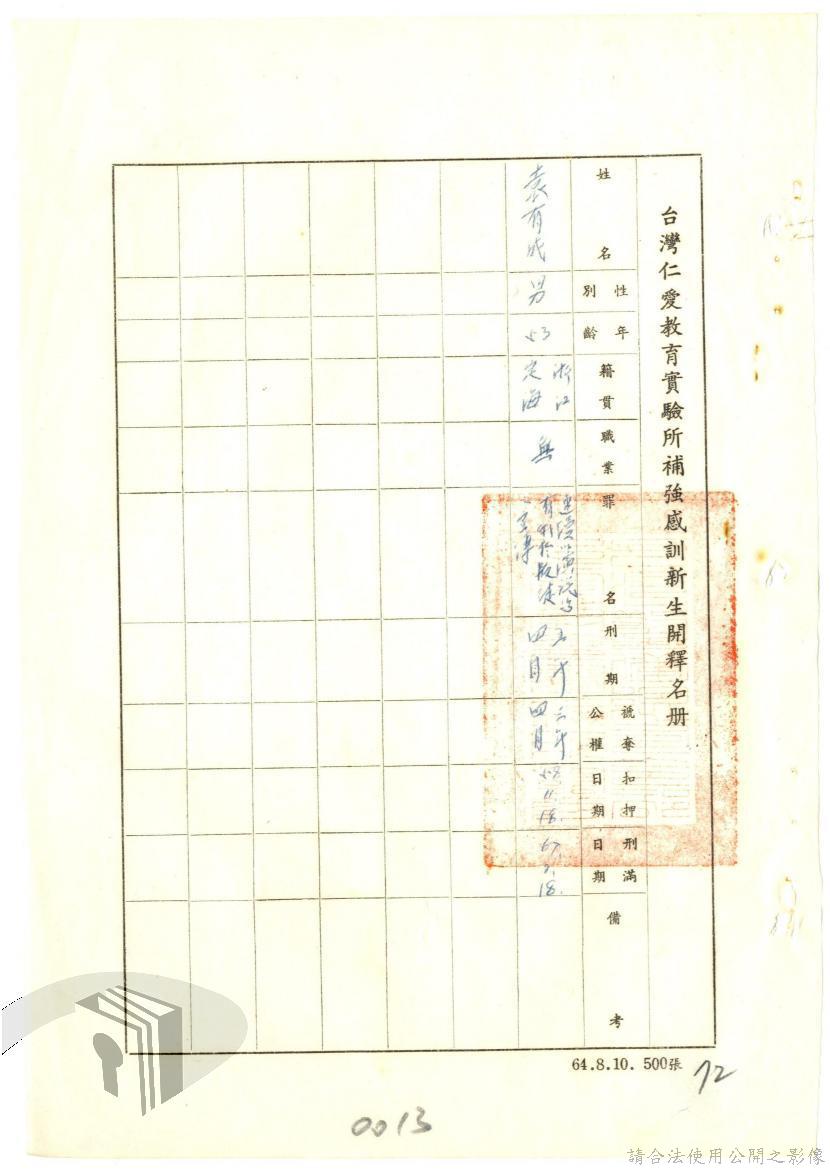 台灣仁愛教育實驗所補強感訓新生開釋名册
姓名
性別
年齡
籍貫
職業
罪名
刑期
褫奪公權
扣押日期
刑滿日期
備考
袁有成
男
53
浙江
定海
無
連續
有利於叛徒
之宣傳
四月
三年
四月
11.
18.
18.
64.8.10. 500張
72
0013
請合法使用公開之影像